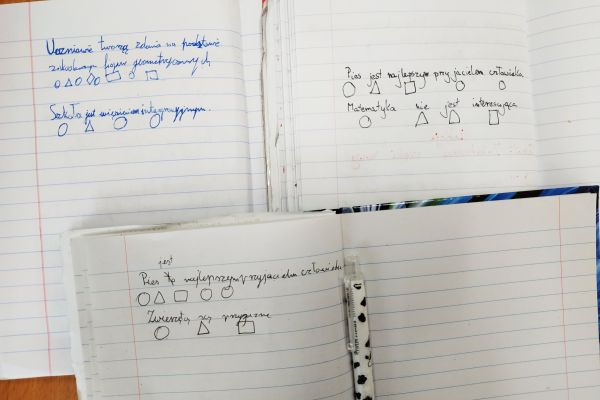 Uczniowie tworzą zdania na podstawie
zakodowanych figur geometrycznych
Szkoła jest więzieniem integracyjnym.
Pies jest najlepszym przyjacielem człowieka
Matematyka nie jest interesująca
jest
Pies najlepszym przyjacielem człowieka
Zwierzęta są przyjazne